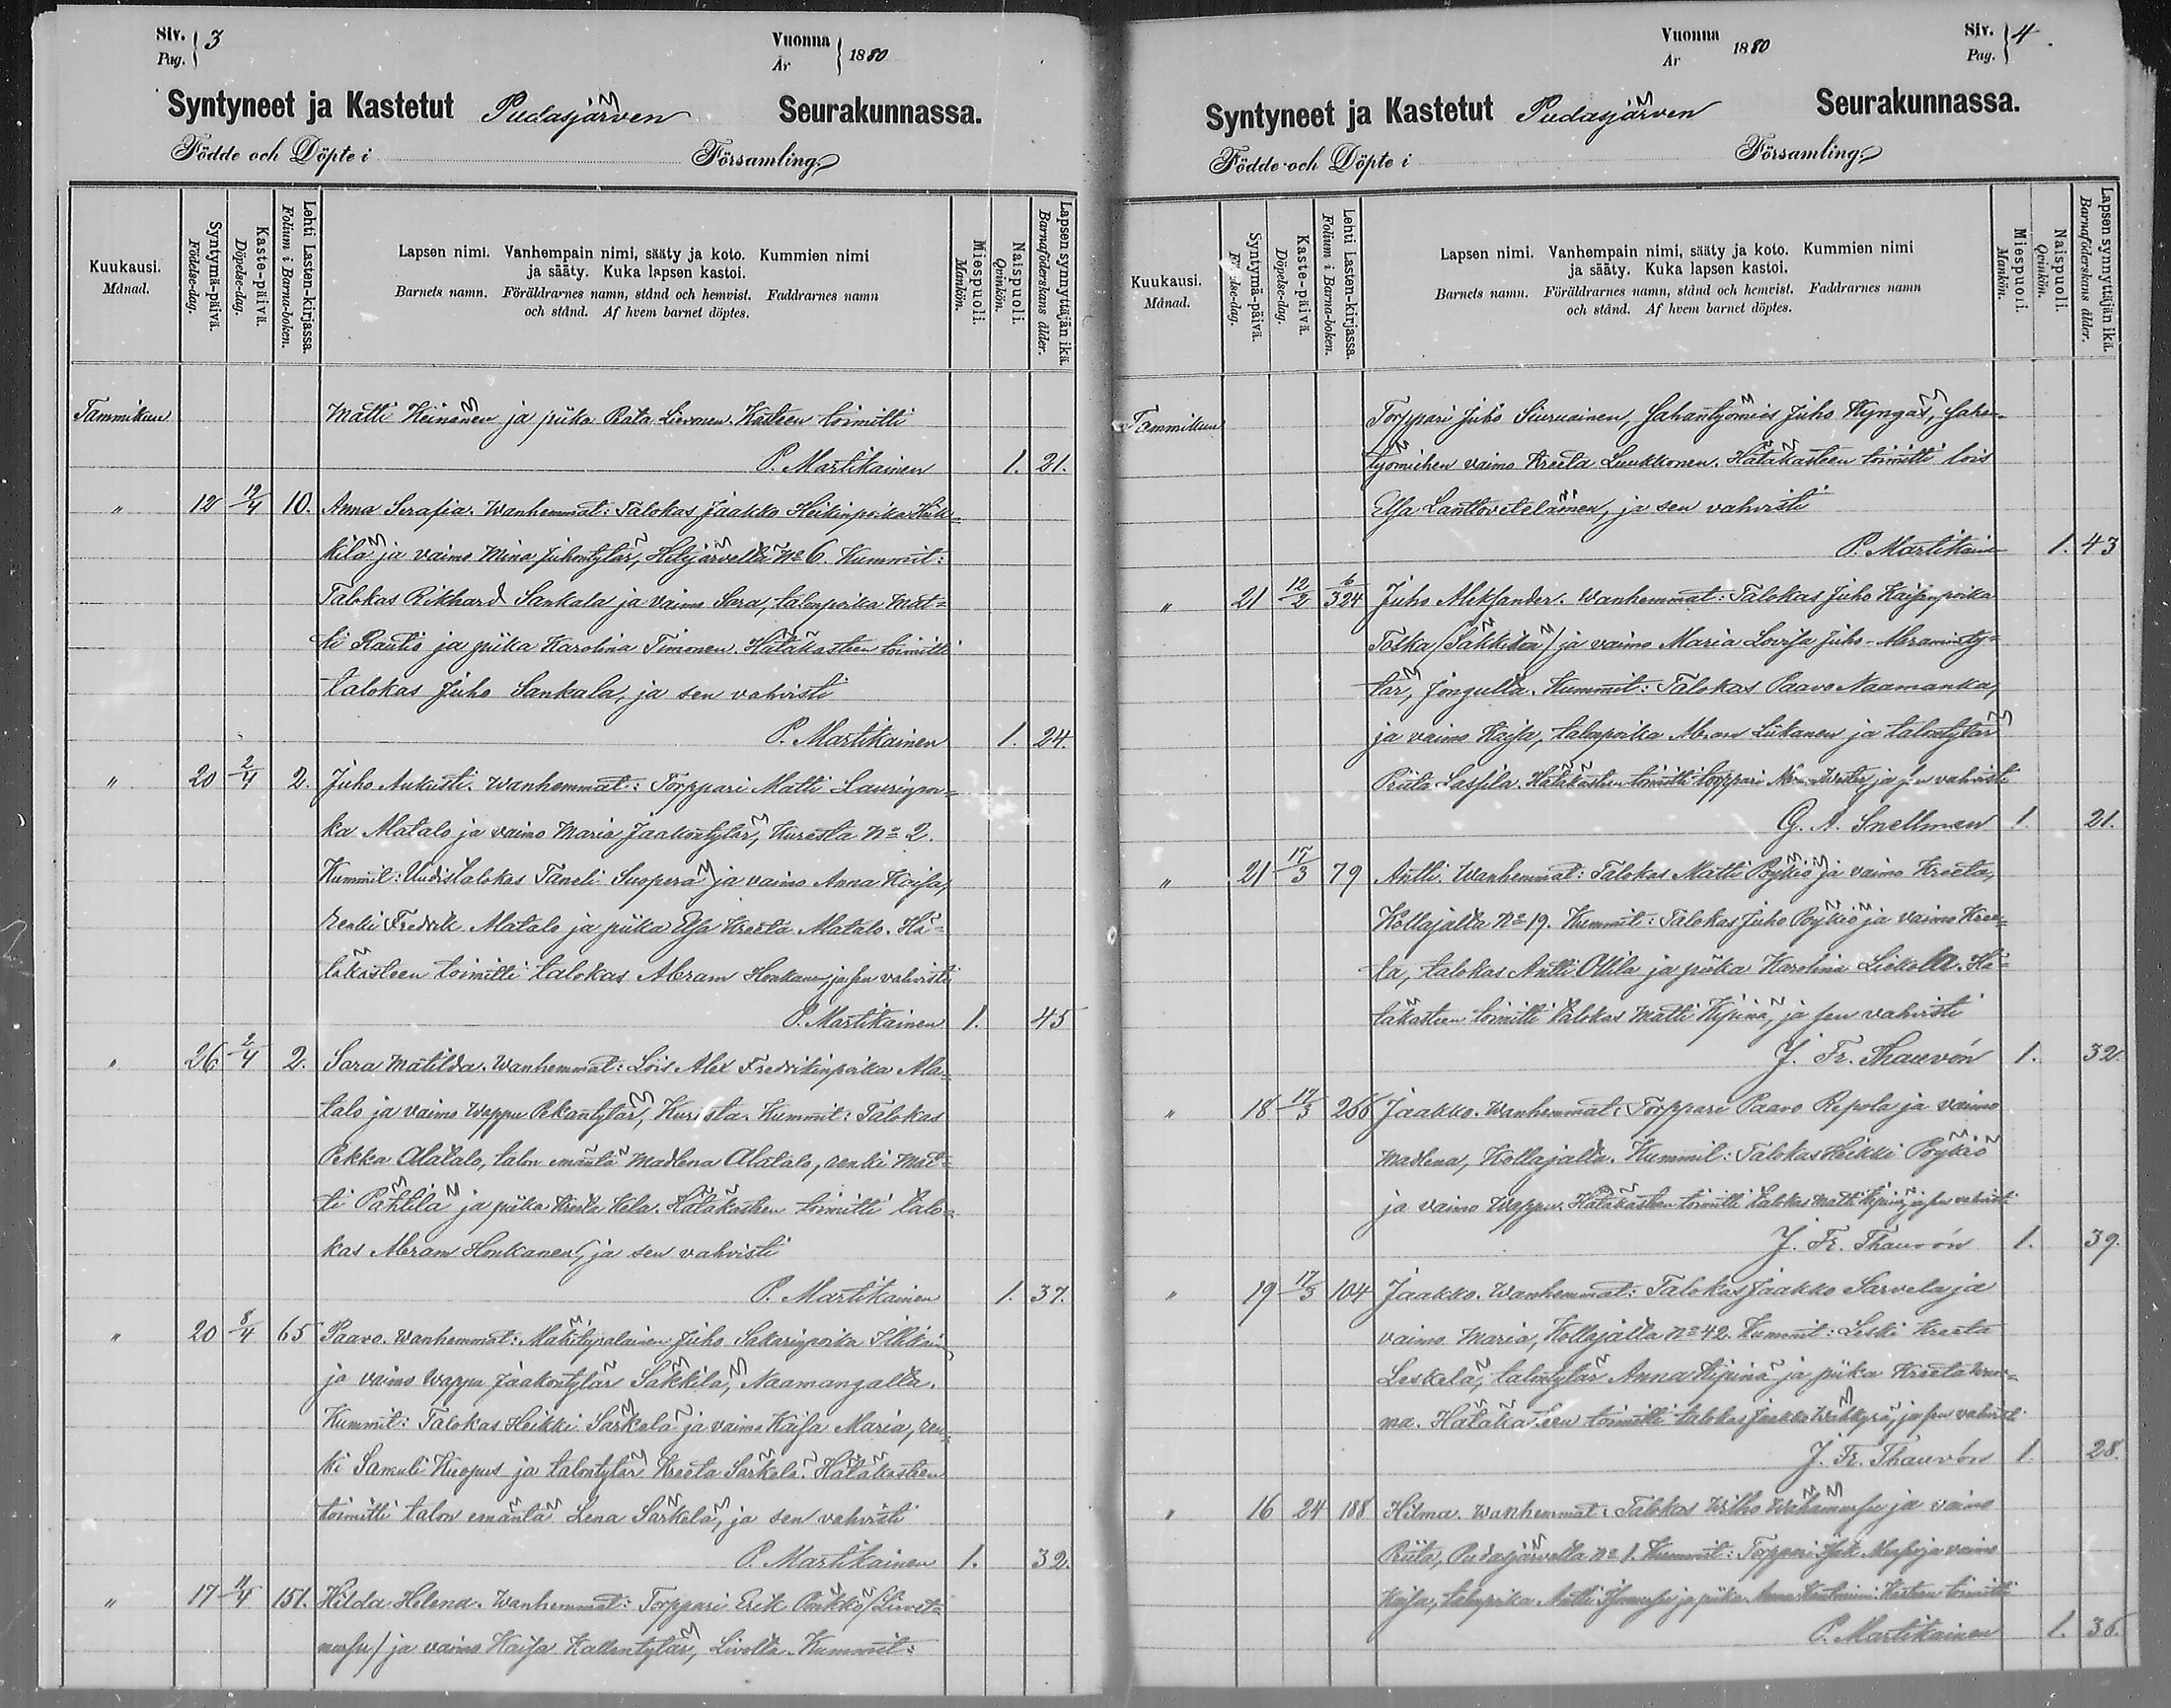 Siv. 3
Pag.
Vuonna 1880
År
Syntyneet ja Kastetut Pudasjärven Seurakunnassa.
Födde och Döpte i Församling.
Kuukausi.
Månad.
Syntymä-päivä.
Födelse-dag.
Kaste-päivä.
Döpelse-dag.
Lehti Lasten-kirjassa.
Folium i Barna-boken.
Lapsen nimi. Vanhempain nimi, sääty ja koto. Kummien nimi
ja sääty. Kuka lapsen kastoi.
Barnets namn. Föräldrarnes namn, stånd och hemvist. Faddrarnes namn
och stånd. Af hvem barnet döptes.
Miespuoli.
Mankön.
Naispuoli.
Qvinkön.
Lapsen synnyttäjän ikä.
Barnaföderskans ålder.
Tammikuu Matti Heinänen ja piika Lievonen. Kasteen toimitti
P. Martikainen 1. 21.
" 12 12/4 10. Anna Serafia. Wanhemmat: Talokas Jaakko Heikinpoika Heik-
kilä ja vaimo Mina Juhontytär, Hetejärveltä No 6. Kummit:
Talokas Rikhard Sankala ja vaimo Sara, talonpoika Mat-
ti Rautio ja piika Karolina Timonen. Hätäkasteen toimitti
talokas Juho Sankala, ja sen vahvisti
P. Martikainen 1. 24.
" 20 2/4 2. Juho Aukusti. Wanhemmat: Torppari Matti Laurinpoi-
ka Alatalo ja vaimo Maria Jaakontytär, Kuresta No 2.
Kummit: Uudistalokas Taneli Suopera ja vaimo Anna Kaisa,
renki Fredrik Alatalo ja piika Elsa Kreeta Alatalo. Hä-
täkasteen toimitti talokas Abram Honkanen, ja sen vahvisti
P. Martikainen 1. 45
" 26 2/4 2. Sara Matilda. Wanhemmat: Lois Alex Fredrikinpoika Ala-
talo ja vaimo Wappu Pekantytär, Kuresta. Kummit: Talokas
Pekka Alatalo, talon emäntä Madlena Alatalo, renki Mat-
ti Pähtilä ja piika Kreeta Kela. Hätäkasteen toimitti talo-
kas Abram Honkanen, ja sen vahvisti
P. Martikainen 1. 37.
" 20 8/4 65 Paavo. Wanhemmat: Mäkitupalainen Juho Sakarinpoika
ja vaimo Wappu Jaakontytär Säkkilä, Naamangalta.
Kummit: Talokas Heikki Särkelä ja vaimo Kaisa Maria, ren-
ki Samuli Kuopus ja talontytär Kreeta Särkelä. Hätäkasteen
toimitti talon emäntä Lena Särkelä, ja sen vahvisti
P. Martikainen 1. 32.
" 17 11/4 151. Hilda Helena. Wanhemmat: Torppari Erik
ja vaimo Kaisa Kallentytär, Livolta. Kummit:
Vuonna 1880
År
Siv. 4
Pag.
Syntyneet ja Kastetut Pudasjärven Seurakunnassa.
Födde och Döpte i Församling.
Kuukausi.
Månad.
Syntymä-päivä.
Födelse-dag.
Kaste-päivä.
Döpelse-dag.
Lehti Lasten-kirjassa.
Folium i Barna-boken.
Lapsen nimi. Vanhempain nimi, sääty ja koto. Kummien nimi
ja sääty. Kuka lapsen kastoi.
Barnets namn. Föräldrarnes namn, stånd och hemvist. Faddrarnes namn
och stånd. Af hvem barnet döptes.
Miespuoli.
Mankön.
Naispuoli.
Qvinkön.
Lapsen synnyttäjän ikä.
Barnaföderskans ålder.
Tammikuu Torppari Juho Siuruainen, Sahantyömies Juho Kyngäs, Sahan-
työmiehen vaimo Kreeta Luukkonen. Hätäkasteen toimitti lois
Elsa ja sen vahvisti
P. Martikainen 1. 43
" 21 12/2 6/324 Juho Aleksander. Wanhemmat: Talokas Juho Kaisanpoika
Tolka (Säkkilä) ja vaimo Maria Lovisa Juho-Abraminty-
tär, Jongulta. Kummit: Talokas Paavo Naamanka,
ja vaimo Kaisa, talonpoika Abram Liikanen ja talontytär
Priita Hätäkasteen toimitti torppari ja sen vahvisti
G. A. Snellman 1. 21.
" 21 17/3 79 Antti. Wanhemmat: Talokas Matti Pöykiö ja vaimo Kreeta,
Kollajalta No 19. Kummit: Talokas Juho Pöykiö ja vaimo Kree-
ta, talokas Antti Ollila ja piika Karolina Liekola. Hä-
täkasteen toimitti talokas Matti Kipinä, ja sen vahvisti
J. Fr. Thauvón 1. 32.
" 18 17/3 266 Jaakko. Wanhemmat: Torppari Paavo Repola ja vaimo
Madlena, Kollajalta. Kummit: Talokas Heikki Pöykiö
ja vaimo Wappu. Hätäkasteen toimitti talokas Matti Kipinä, ja sen vahvisti
J. Fr. Thauvón 1. 39.
" 19 17/3 104 Jaakko. Wanhemmat: Talokas Jaakko Sarvela ja
vaimo Maria, Kollajalta No 42. Kummit: Leski Kreeta
Leskelä, talontytär Anna Kipinä ja piika Kreeta
Hätäkasteen toimitti talokas Jaakko ja sen vahvisti
J. Fr. Thauvón 1. 28.
" 16 24 188 Hilma. Wanhemmat: Talokas Wilho ja vaimo
Priita, Pudasjärveltä No 1. Kummit: Torppari ja vaimo
Kaisa, talonpoika Antti ja piika Anna Kasteen toimitti
P. Martikainen 1. 36.